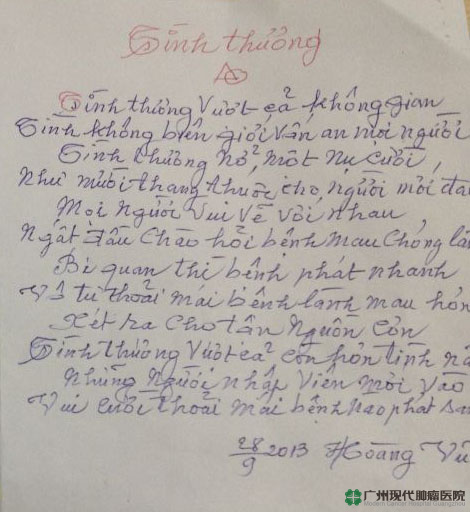 Tình thương
Tình thương vượt cả không gian
Tình không biên giới vẫn an mọi người
Tình thương nở một nụ cười,
Như mười thang thuốc cho người mới đa
Mọi người vui vẻ với nhau,
Ngất đầu chào hỏi bệnh mau chóng là
Bi quan thì bệnh phát nhanh
Vô tư thoải mái bệnh lành mau hơn
Xét ra cho tận nguồn cơn
Tình thương vượt cả còn hơn tình
Những người nhập viện mới vào
Vui cười thoải mái bệnh nào phát
28/9 2013 Hoàng Vũ
广州现代肿瘤医院